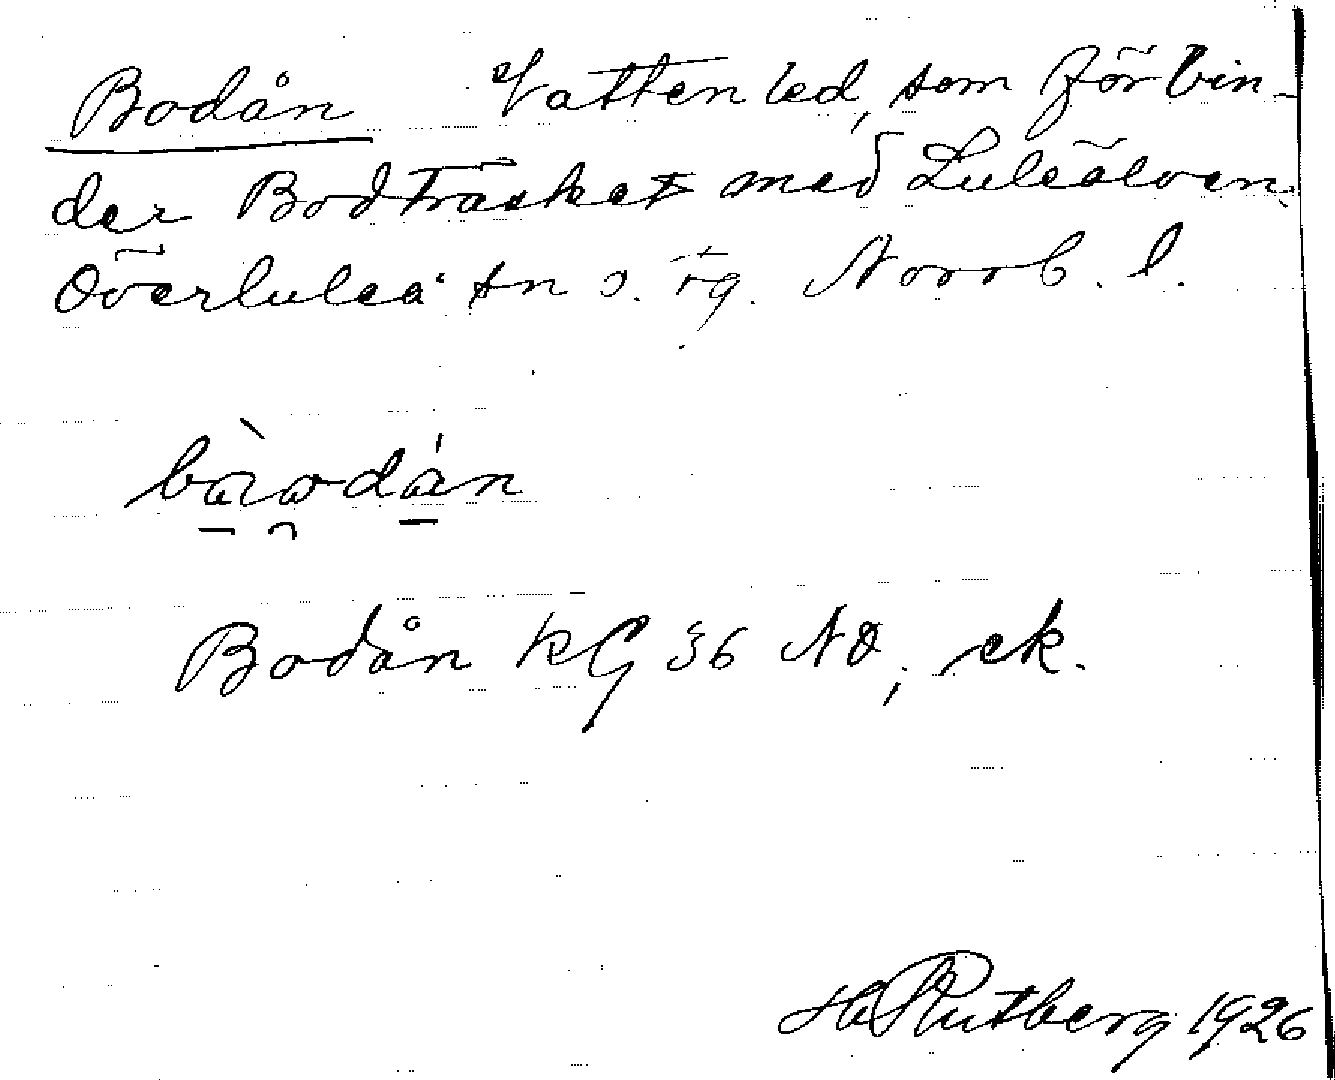 Bodån Vattenled, som förbin-
der Bodträsket med Luleälven
Överluleå sn o. tg. Norrb. l.
Bodån KG 36 NO, ek.
H Rutberg 1926